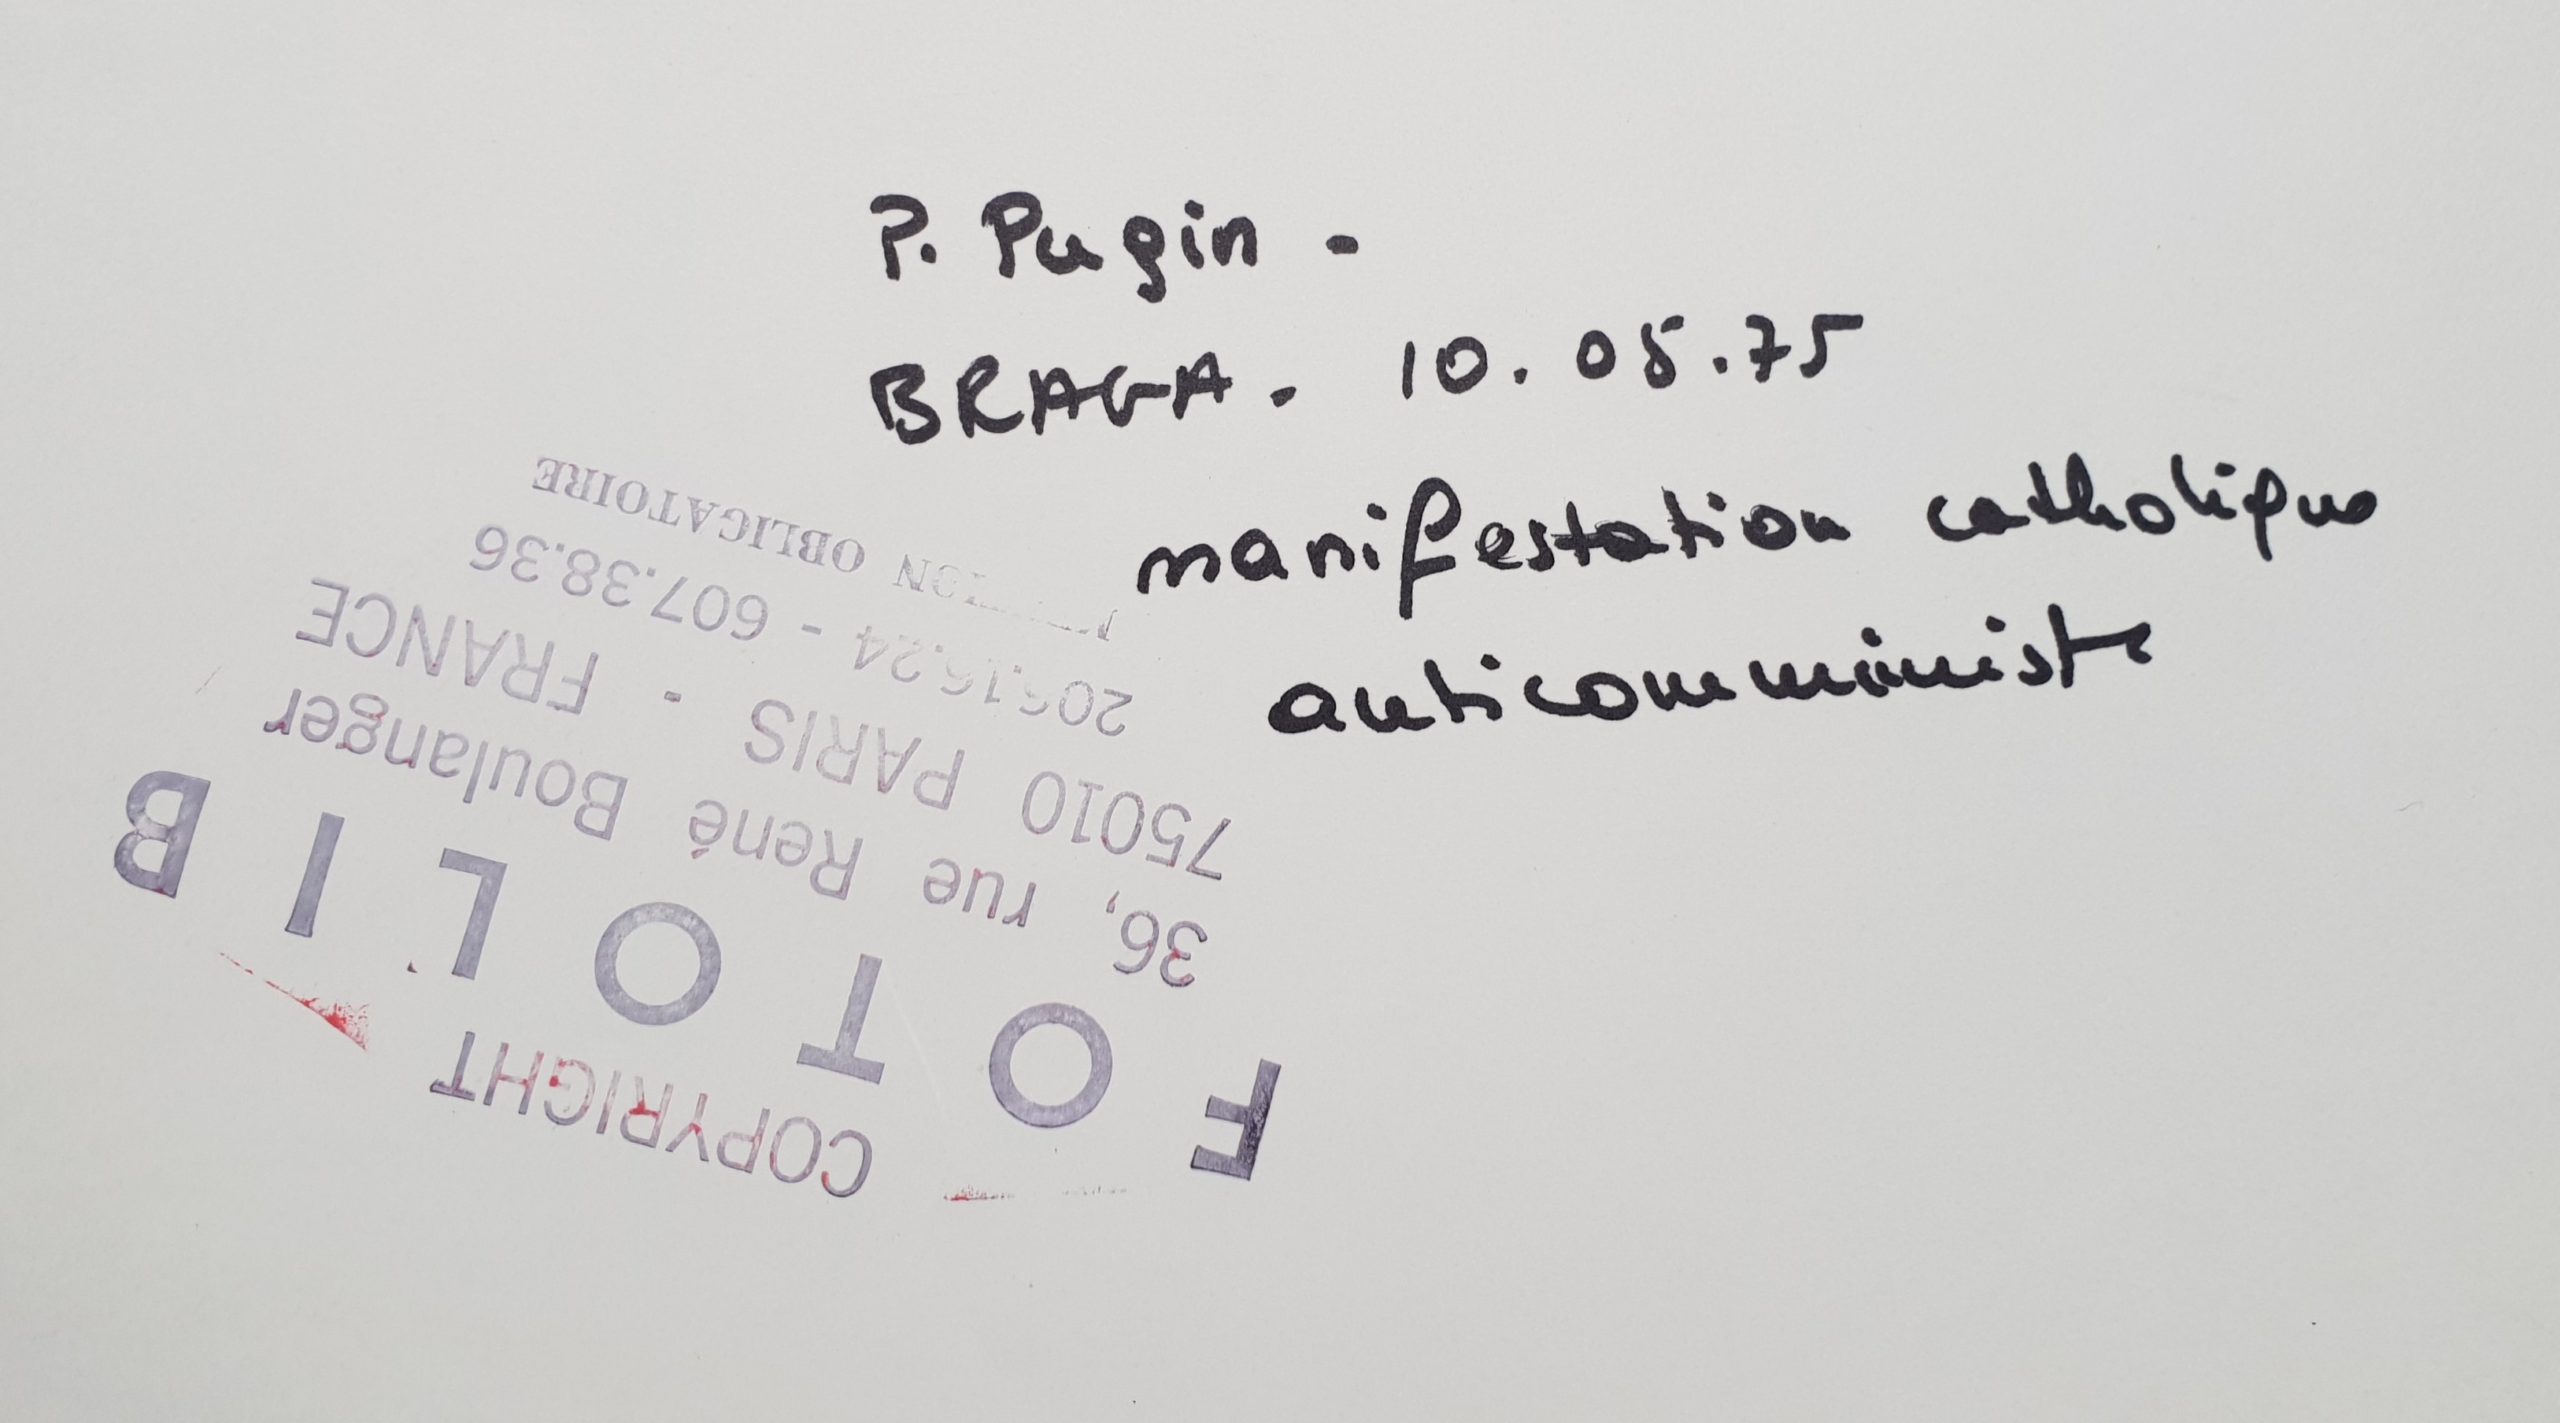 P. Pugin -
BRAGA. 10. 08.75
manifestation catholique
anticommuniste
COPYRIGHT
FOTOLIB
36, rue René Boulanger
75010 PARIS - FRANCE
- 607.38.36
OBLIGATOIRE